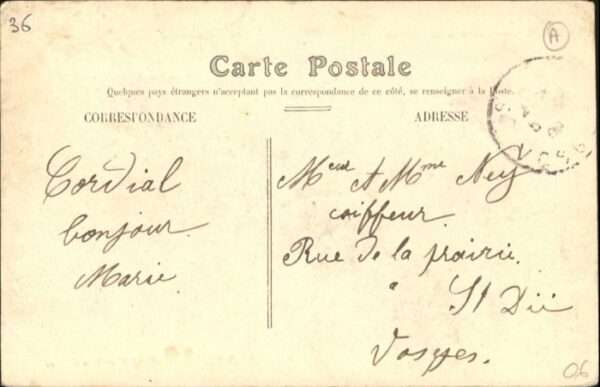 36
A
Carte Postale
Quelques pays étrangers n'acceptant pas la correspondance de ce côté, se renseigner à la Poste.
CORRESPONDANCE
ADRESSE
Cordial
bonjour
Marie
Meur et Mme Ney
coiffeur
Rue de la prairie.
à St Dié
Vosges.
06